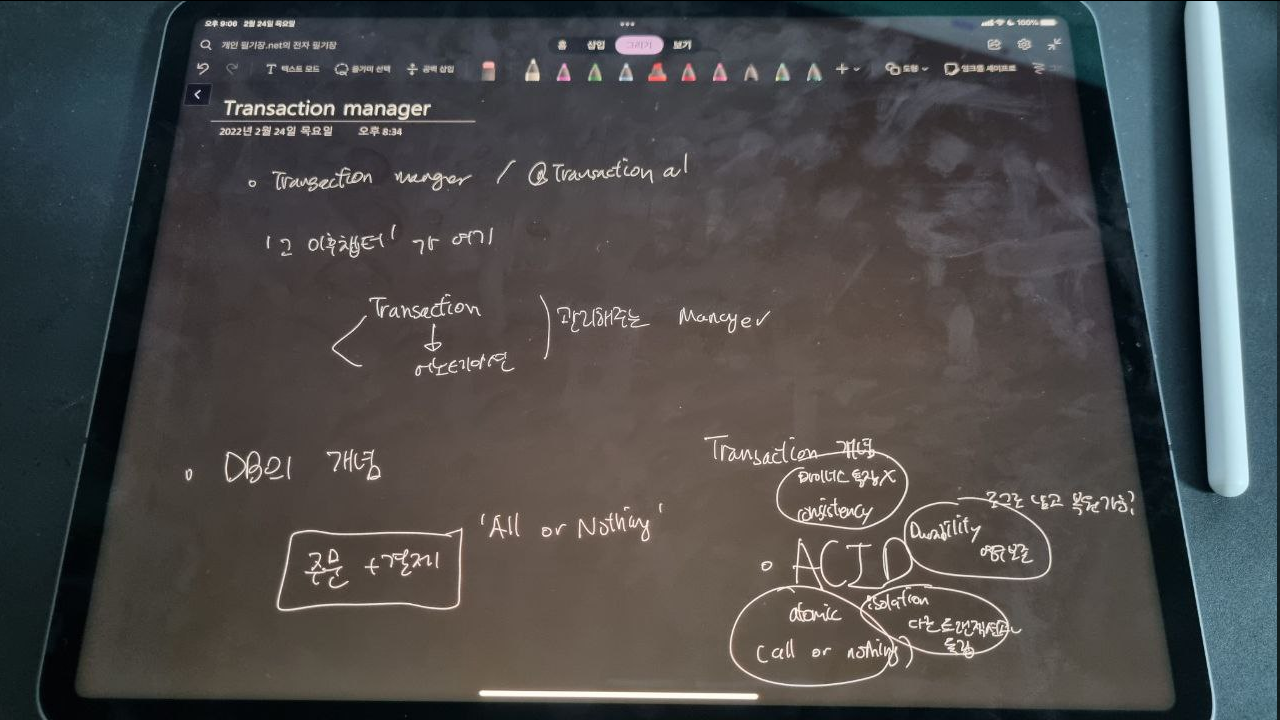 오후 9:06 2월 24일 목요일
100%
개인 필기장.net의 전자 필기장
홈 삽입 그리기 보기
텍스트 모드 올가미 선택 공백 삽입 도형 잉크를 셰이프로
Transaction manager
2022년 2월 24일 목요일 오후 8:34
Transaction manager / @Transactional
'그 이후챕터' 가 여기
Transaction
관리해주는 Manager
어노테이션
DB의 개념
'All or Nothing'
주문 + 결제
Transaction 개념
consistency
로그로 남고 복원가능?
Durability
영구보존
ACID
atomic
(all or nothing)
isolation
다른 트랜잭션과
독립